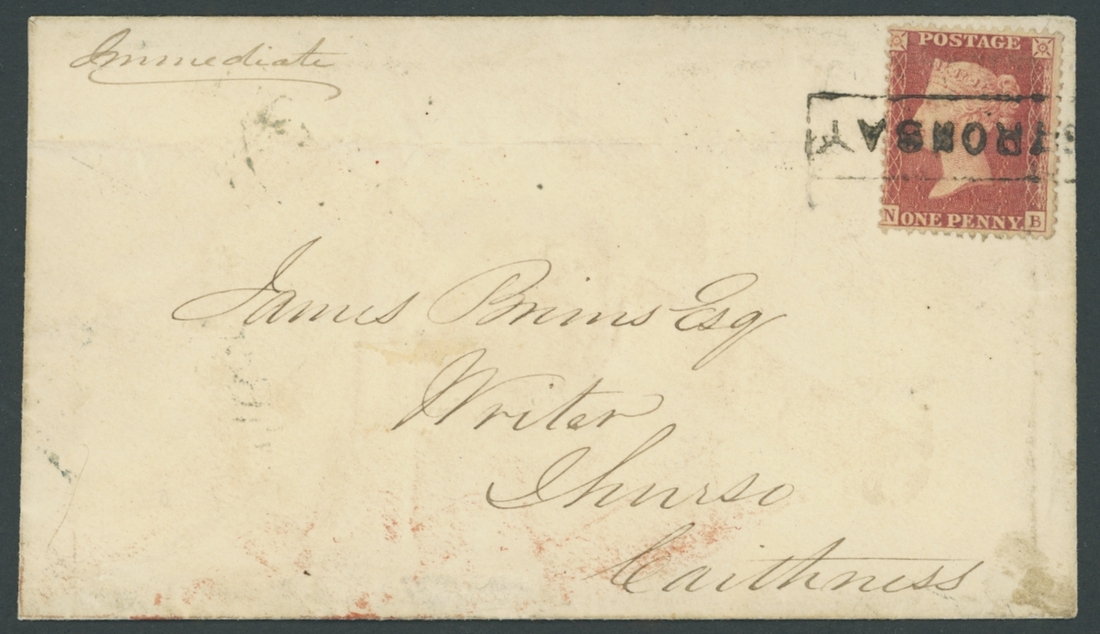 Immediate
POSTAGE
STRONSAY
N ONE PENNY. B
James Brims Esq
Writer
Thurso
Caithness